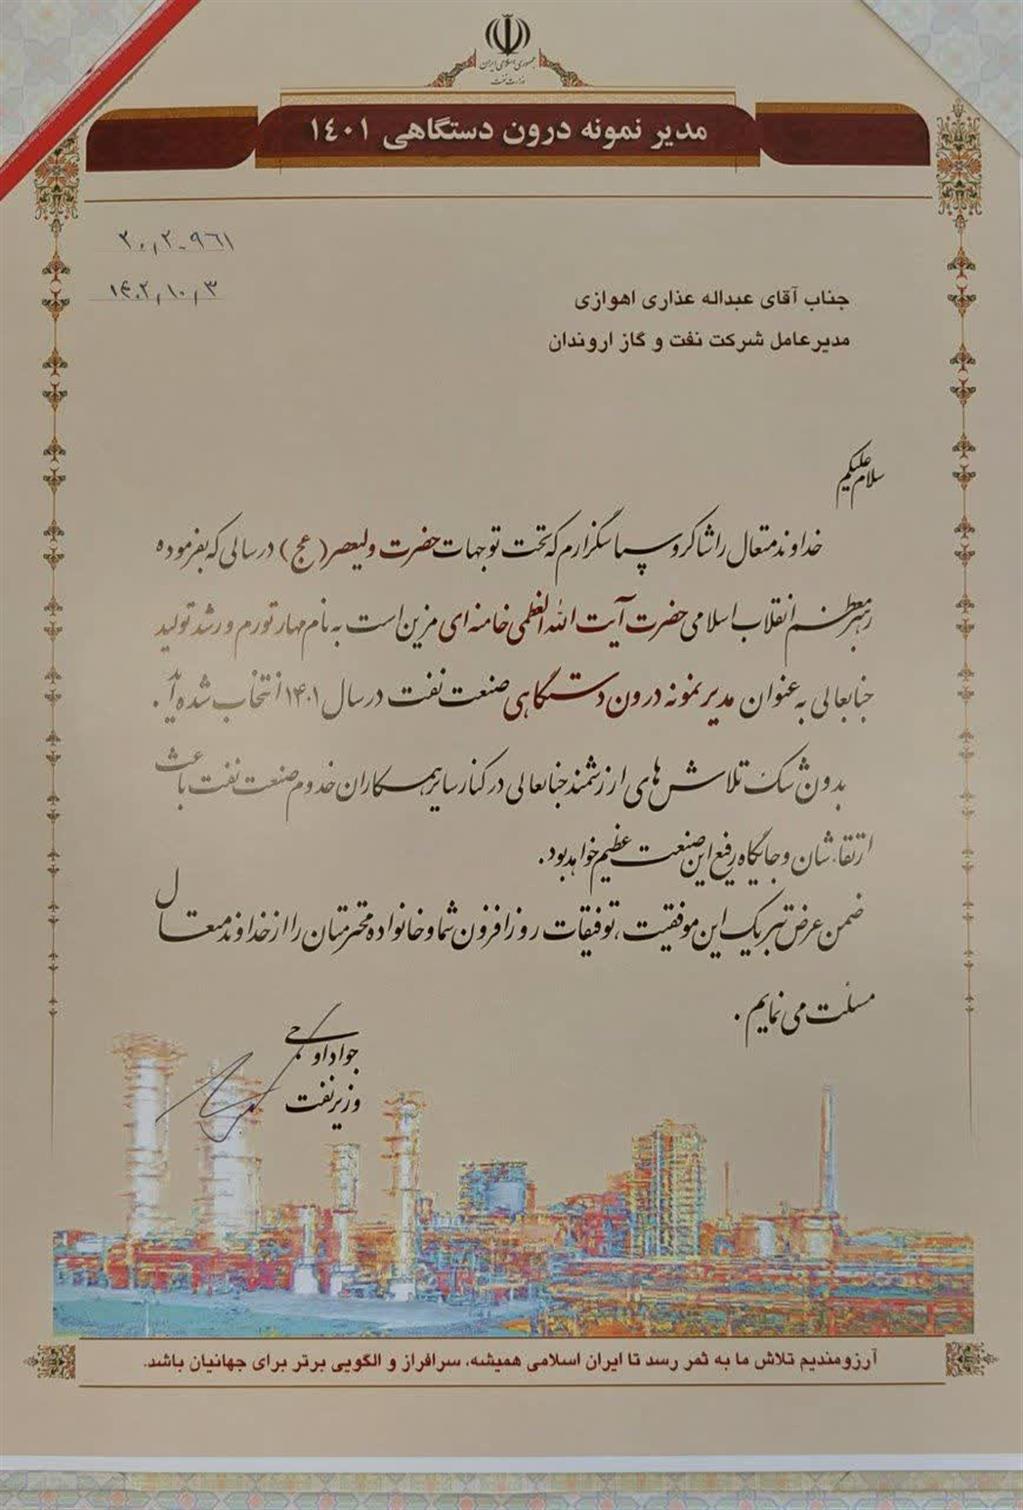 جمهوری اسلامی ایران
وزارت نفت
مدیر نمونه درون دستگاهی ۱۴۰۱
۲۰٫۲-۹۶۱
۱۴۰۲٫۱۰٫۳
جناب آقای عبداله عذاری اهوازی
مدیرعامل شرکت نفت و گاز اروندان
سلام علیکم
خداوند متعال را شاکر و سپاسگزارم که تحت توجهات حضرت ولیعصر (عج) در سالی که بفرموده
رهبر معظم انقلاب اسلامی حضرت آیت الله العظمی خامنه ای مزین است به نام مهار تورم و رشد تولید
جنابعالی به عنوان مدیر نمونه درون دستگاهی صنعت نفت در سال ۱۴۰۱ انتخاب شده اید.
بدون شک تلاش های ارزشمند جنابعالی در کنار سایر همکاران خدوم صنعت نفت باعث
ارتقاء شان و جایگاه رفیع این صنعت عظیم خواهد بود.
ضمن عرض تبریک این موفقیت، توفیقات روزافزون شما و خانواده محترمتان را از خداوند متعال
مسئلت می نمایم.
جواد اوجی
وزیر نفت
آرزومندیم تلاش ما به ثمر رسد تا ایران اسلامی همیشه، سرافراز و الگویی برتر برای جهانیان باشد.